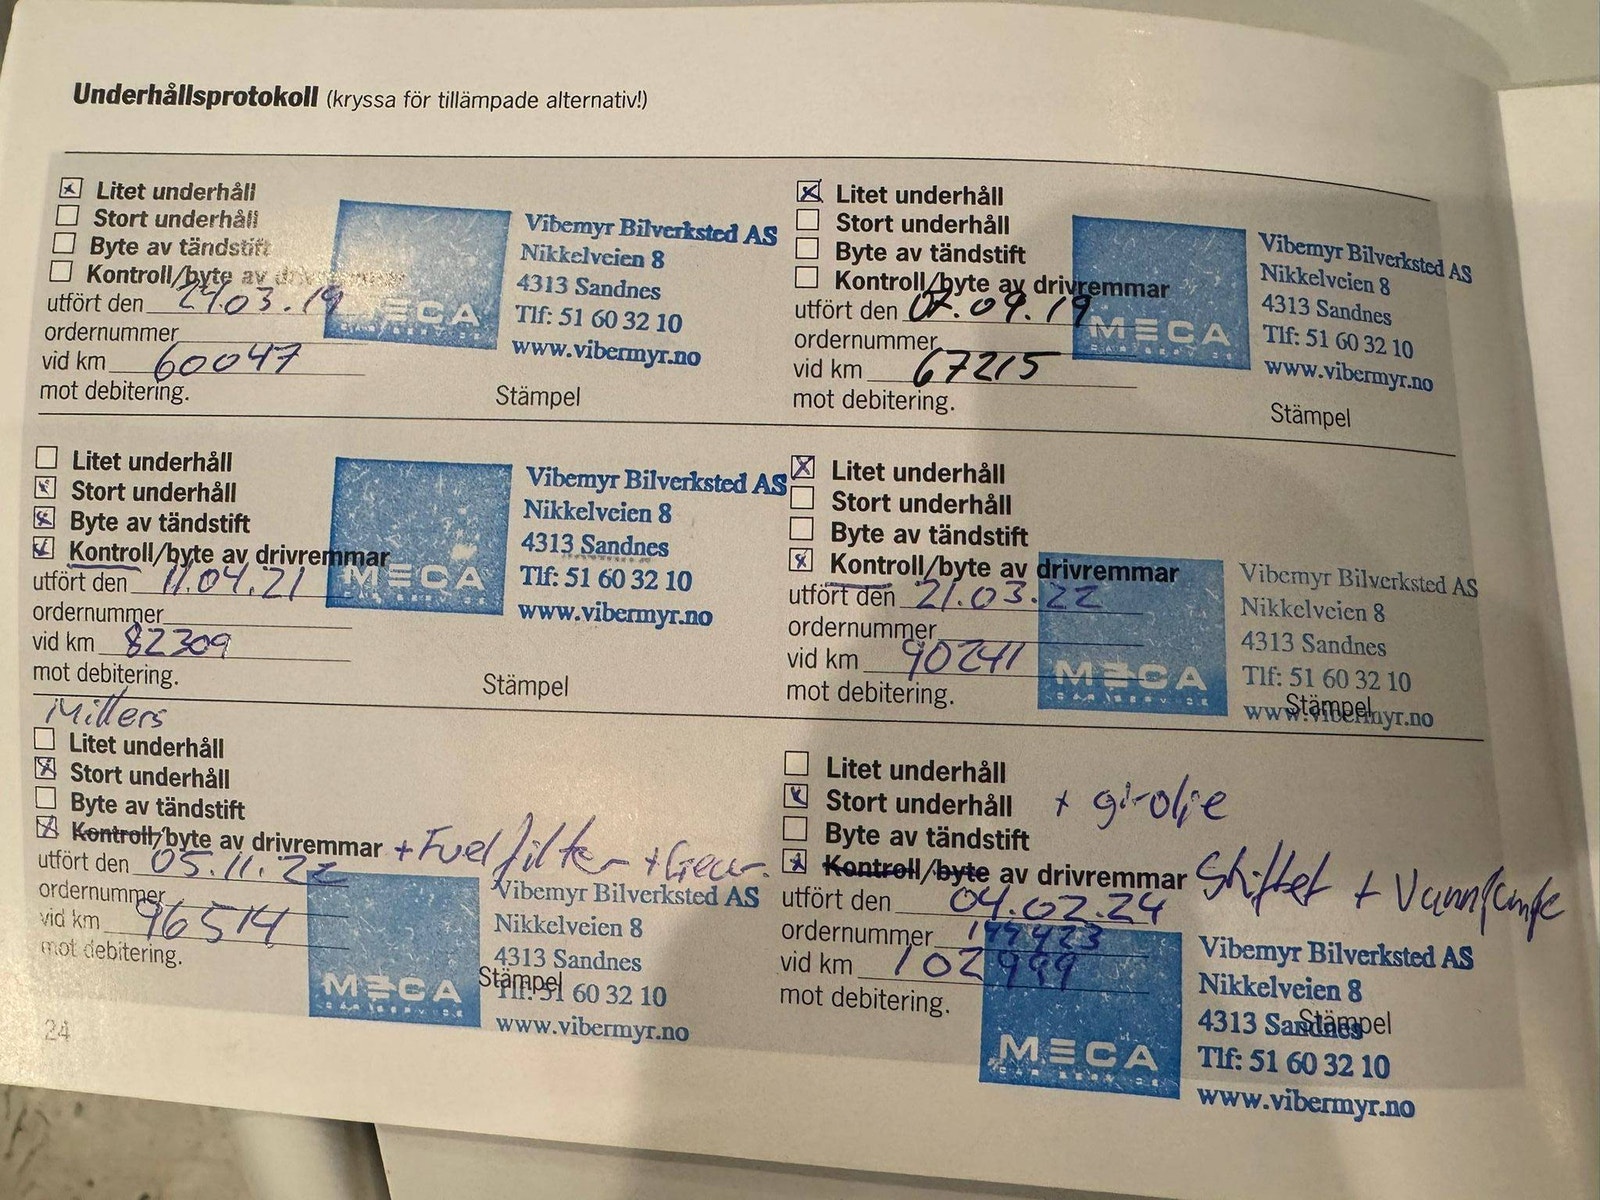 Underhållsprotokoll (kryssa för tillämpade alternativ!)
Litet underhåll
Stort underhåll
Byte av tändstift
Kontroll/byte av drivremmar
utfört den 24.03.19
ordernummer
vid km 60047
mot debitering.
MECA
CAR SERVICE
Vibemyr Bilverksted AS
Nikkelveien 8
4313 Sandnes
Tlf: 51 60 32 10
www.vibermyr.no
Stämpel
Litet underhåll
Stort underhåll
Byte av tändstift
Kontroll/byte av drivremmar
utfört den 07.09.19
ordernummer
vid km 67215
mot debitering.
MECA
CAR SERVICE
Vibemyr Bilverksted AS
Nikkelveien 8
4313 Sandnes
Tlf: 51 60 32 10
www.vibermyr.no
Stämpel
Litet underhåll
Stort underhåll
Byte av tändstift
Kontroll/byte av drivremmar
utfört den 11.04.21
ordernummer
vid km 82309
mot debitering.
MECA
Vibemyr Bilverksted AS
Nikkelveien 8
4313 Sandnes
Tlf: 51 60 32 10
www.vibermyr.no
Stämpel
Litet underhåll
Stort underhåll
Byte av tändstift
Kontroll/byte av drivremmar
utfört den 21.03.22
ordernummer
vid km 90241
mot debitering.
MECA
CAR SERVICE
Vibemyr Bilverksted AS
Nikkelveien 8
4313 Sandnes
Tlf: 51 60 32 10
www.vibermyr.no
Stämpel
Millers
Litet underhåll
Stort underhåll
Byte av tändstift
Kontroll/byte av drivremmar + Fuel filter +
utfört den 05.11.22
ordernummer
vid km 96514
mot debitering.
MECA
CAR SERVICE
Vibemyr Bilverksted AS
Nikkelveien 8
4313 Sandnes
Tlf: 51 60 32 10
www.vibermyr.no
Stämpel
Litet underhåll
Stort underhåll + girolje
Byte av tändstift
Kontroll/byte av drivremmar Skiftet +
utfört den 04.02.24
ordernummer 144423
vid km 102999
mot debitering.
MECA
CAR SERVICE
Vibemyr Bilverksted AS
Nikkelveien 8
4313 Sandnes
Tlf: 51 60 32 10
www.vibermyr.no
Stämpel
24